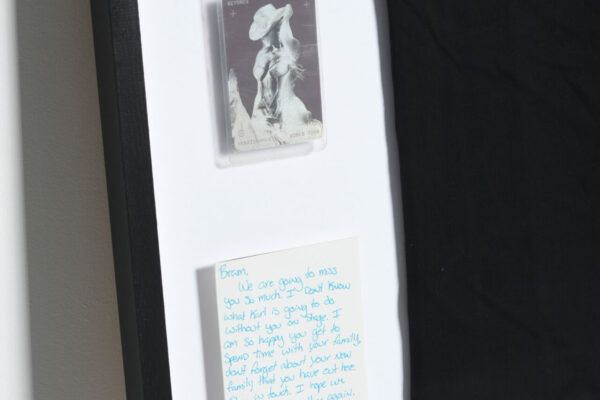 BEYONCÉ
RENAISSANCE WORLD TOUR
Bram,
We are going to miss
you so much. I Don't Know
what Karl is going to do
without you on stage. I
am so happy you get to
spend time with your family,
don't forget about your new
family that you have out here
in touch. I hope we
again,